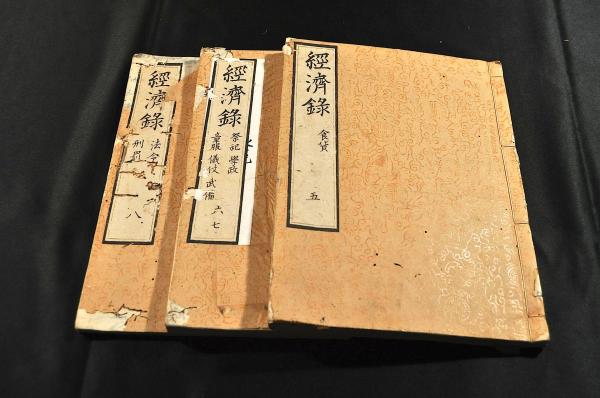 經濟錄
食貨
五
經濟錄
祭祀 學政
章服 儀仗 武備
六 七
經濟錄
法令
刑罰
八